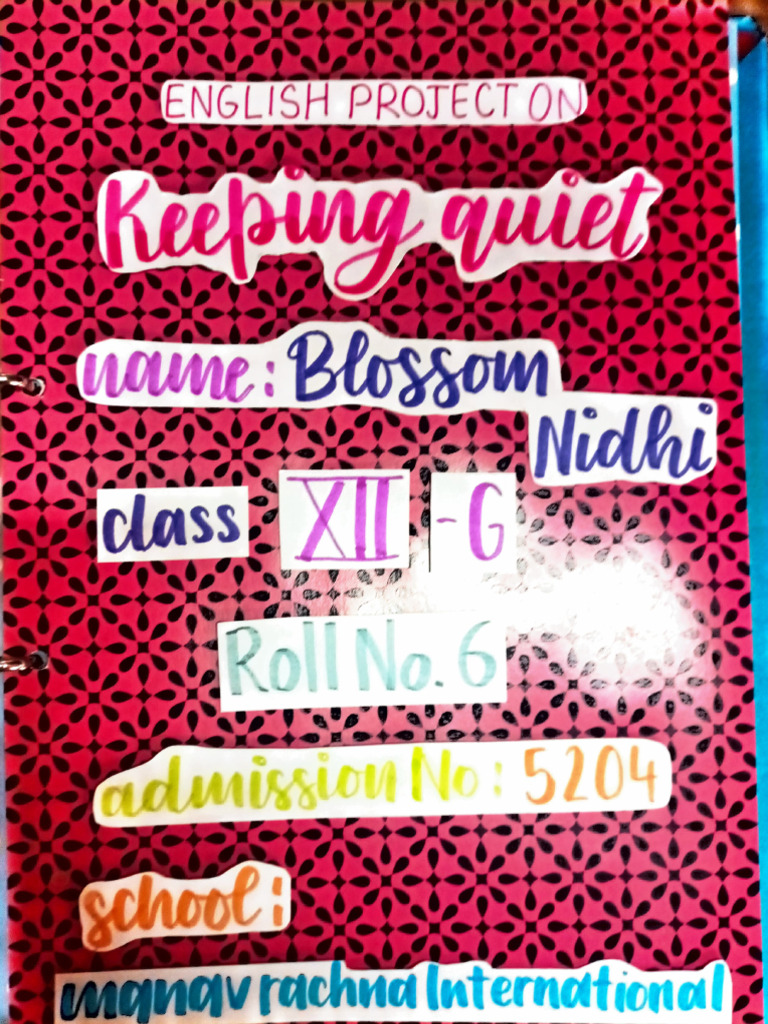 ENGLISH PROJECT ON
Keeping quiet
name: Blossom
Nidhi
class XII -G
Roll No. 6
admission No: 5204
school:
manav rachna International